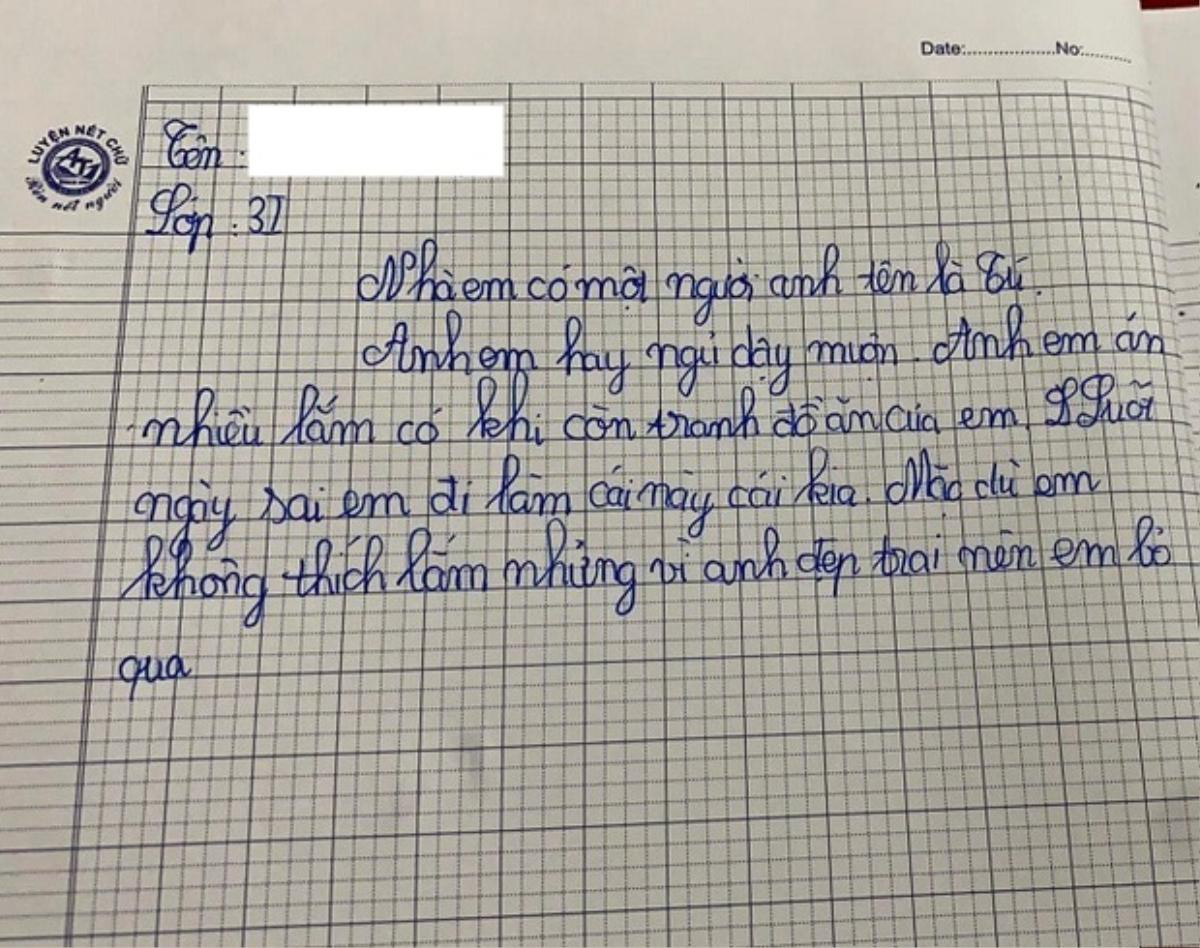 Date:..................No:..........
LUYỆN NÉT CHỮ
Rèn nết người
Tên :
Lớp : 3I
Nhà em có một người anh tên là Tú.
Anh em hay ngủ dậy muộn. Anh em ăn
nhiều lắm có khi còn tranh đồ ăn của em. Suốt
ngày sai em đi làm cái này cái kia. Mặc dù em
không thích lắm nhưng vì anh đẹp trai nên em bỏ
qua